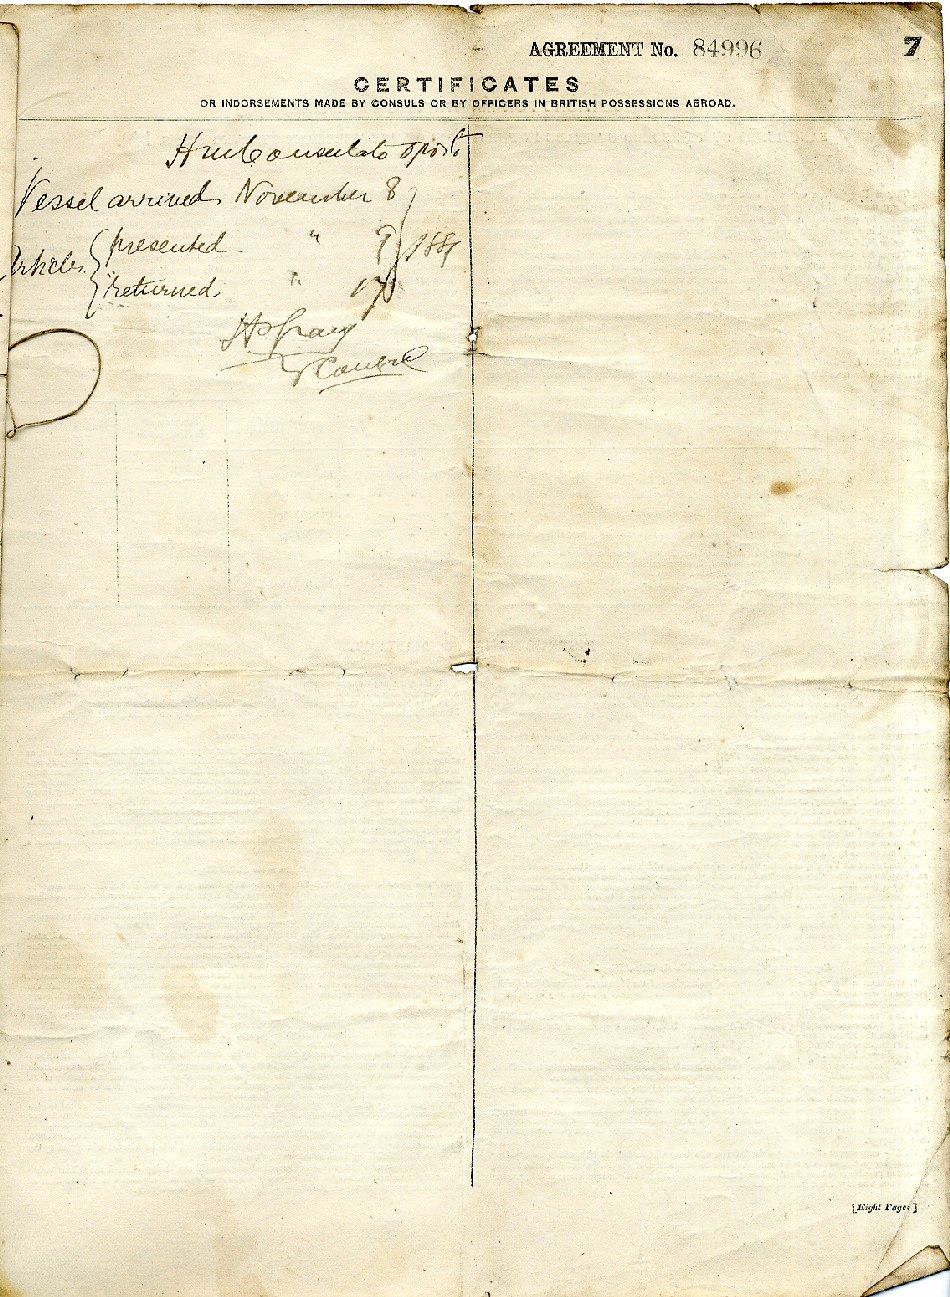 AGREEMENT No. 84996
7
CERTIFICATES
OR INDORSEMENTS MADE BY CONSULS OR BY OFFICERS IN BRITISH POSSESSIONS ABROAD.
HM Consulate Oporto
Vessel arrived November 8
Articles { presented " 9 } 188
returned "
Consul
[Eight Pages]